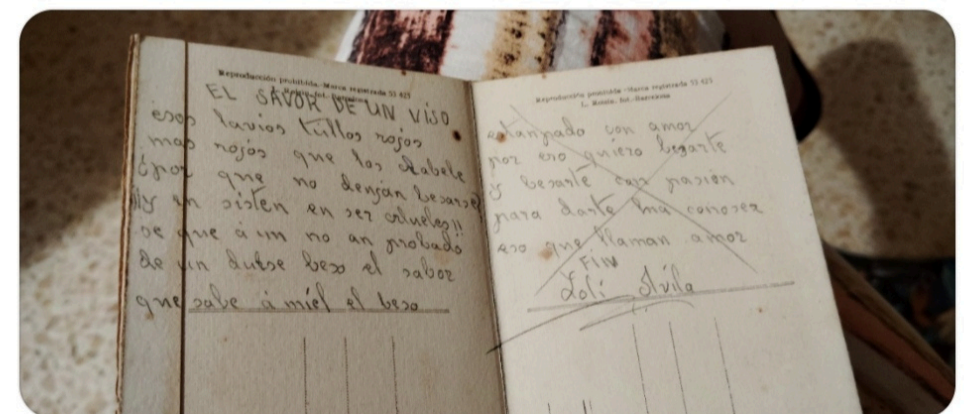 Reproducción prohibida. Marca registrada 53 425
EL SAVOR DE UN VISO
esos lavios tullos rojos
mas rojos que los clabele
¿por que no denjan besarse?
¡¡y en sisten en ser crlueles!!
se que á un no an probado
de un dulse beso el sabor
que sabe á miel el beso
Reproducción prohibida. Marca registrada 53 425
estanpado con amor
por eso quiero besarte
y besarte con pasión
para darte ha conoser
eso que llaman amor
FIN
Loli Avila